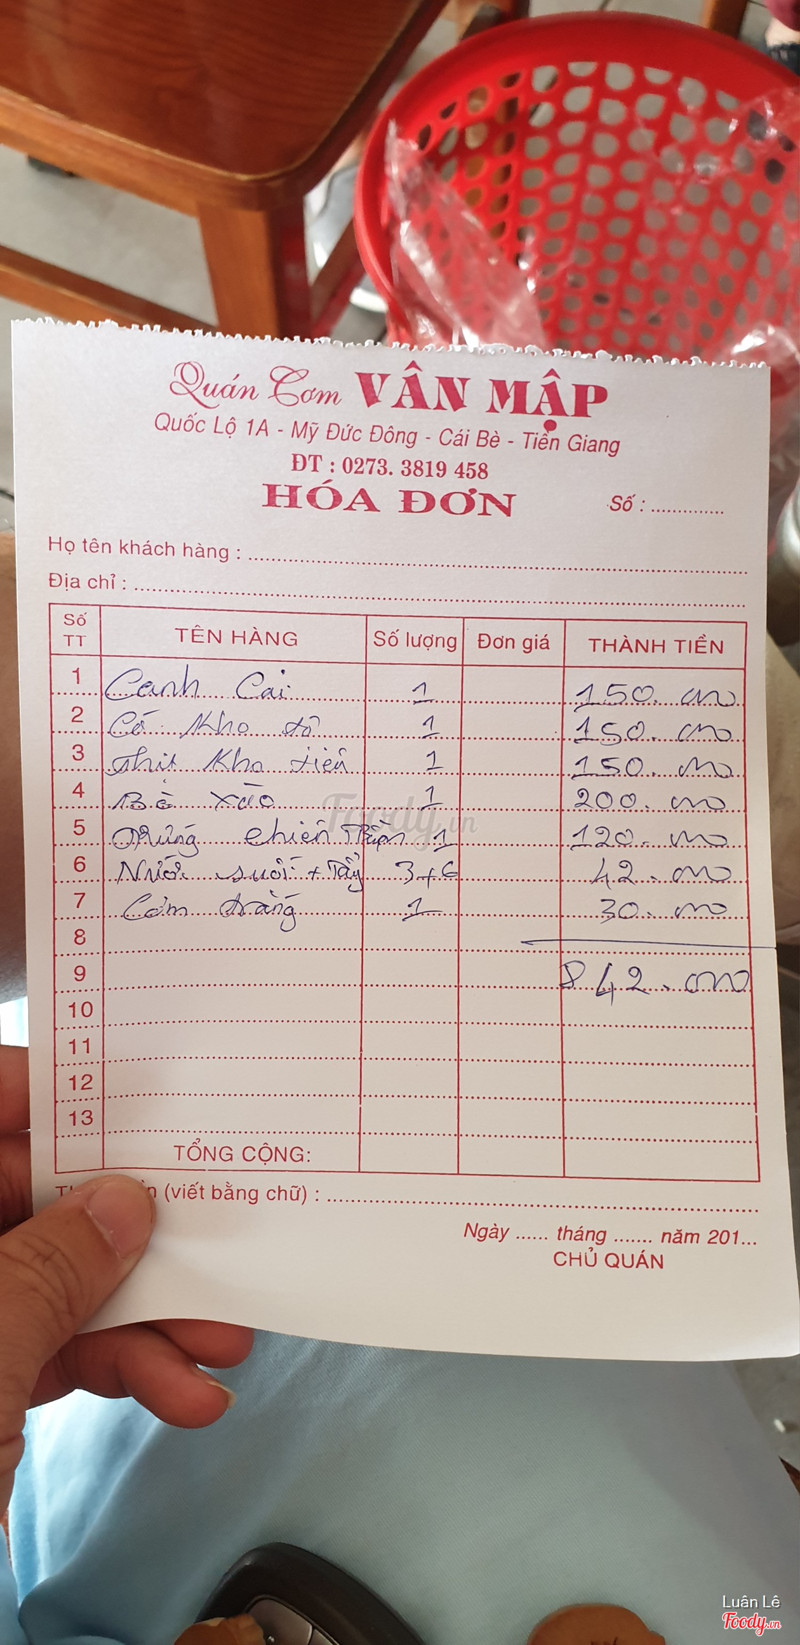 Quán Cơm VÂN MẬP
Quốc Lộ 1A - Mỹ Đức Đông - Cái Bè - Tiền Giang
ĐT : 0273. 3819 458
HÓA ĐƠN
Số : ..............
Họ tên khách hàng :
Địa chỉ :
Số TT TÊN HÀNG Số lượng Đơn giá THÀNH TIỀN
1 Canh Cải 1 150.000
2 Cá Kho tô 1 150.000
3 Thịt Kho tiêu 1 150.000
4 Bò xào 1 200.000
5 Trứng chiên 1 120.000
6 Nước suối + Tẩy 3+6 42.000
7 Cơm trắng 1 30.000
8
9 842.000
10
11
12
13
TỔNG CỘNG:
(viết bằng chữ) :
Ngày ...... tháng ....... năm 201...
CHỦ QUÁN
Foody.vn
Luân Lê
Foody.vn